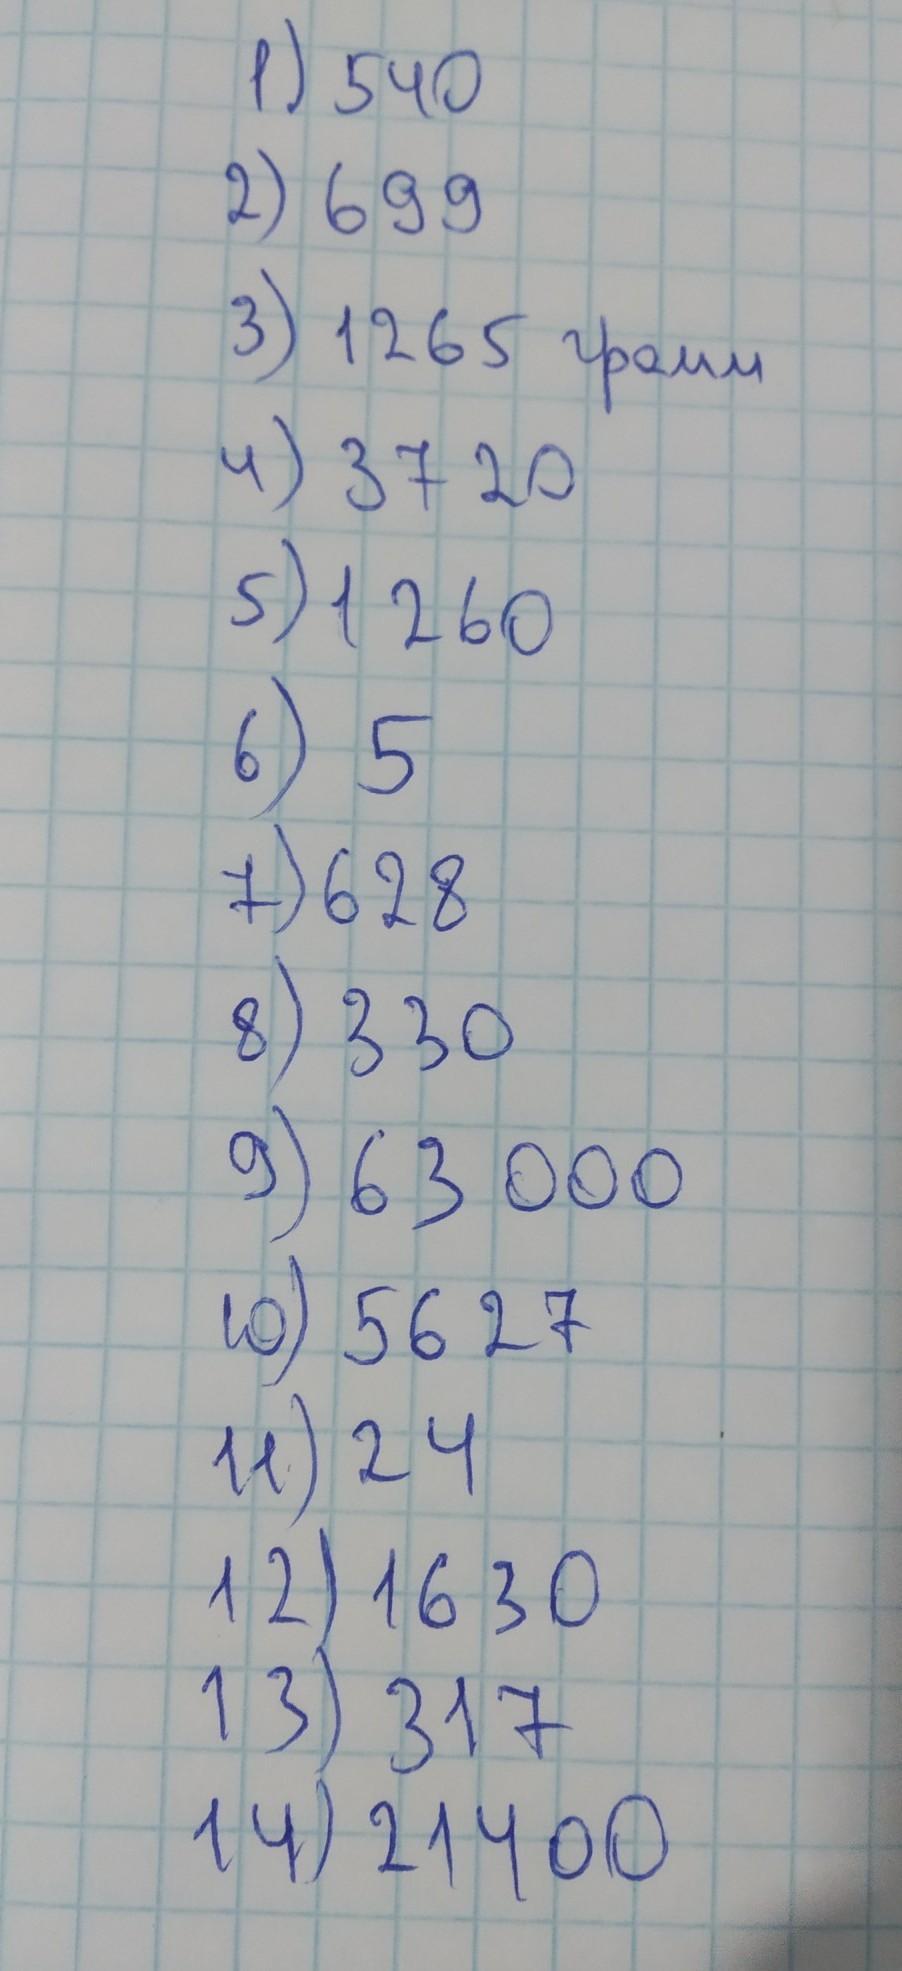 1) 540
2) 699
3) 1265 грамм
4) 3720
5) 1260
6) 5
7) 628
8) 330
9) 63 000
10) 5627
11) 24
12) 1630
13) 317
14) 21400